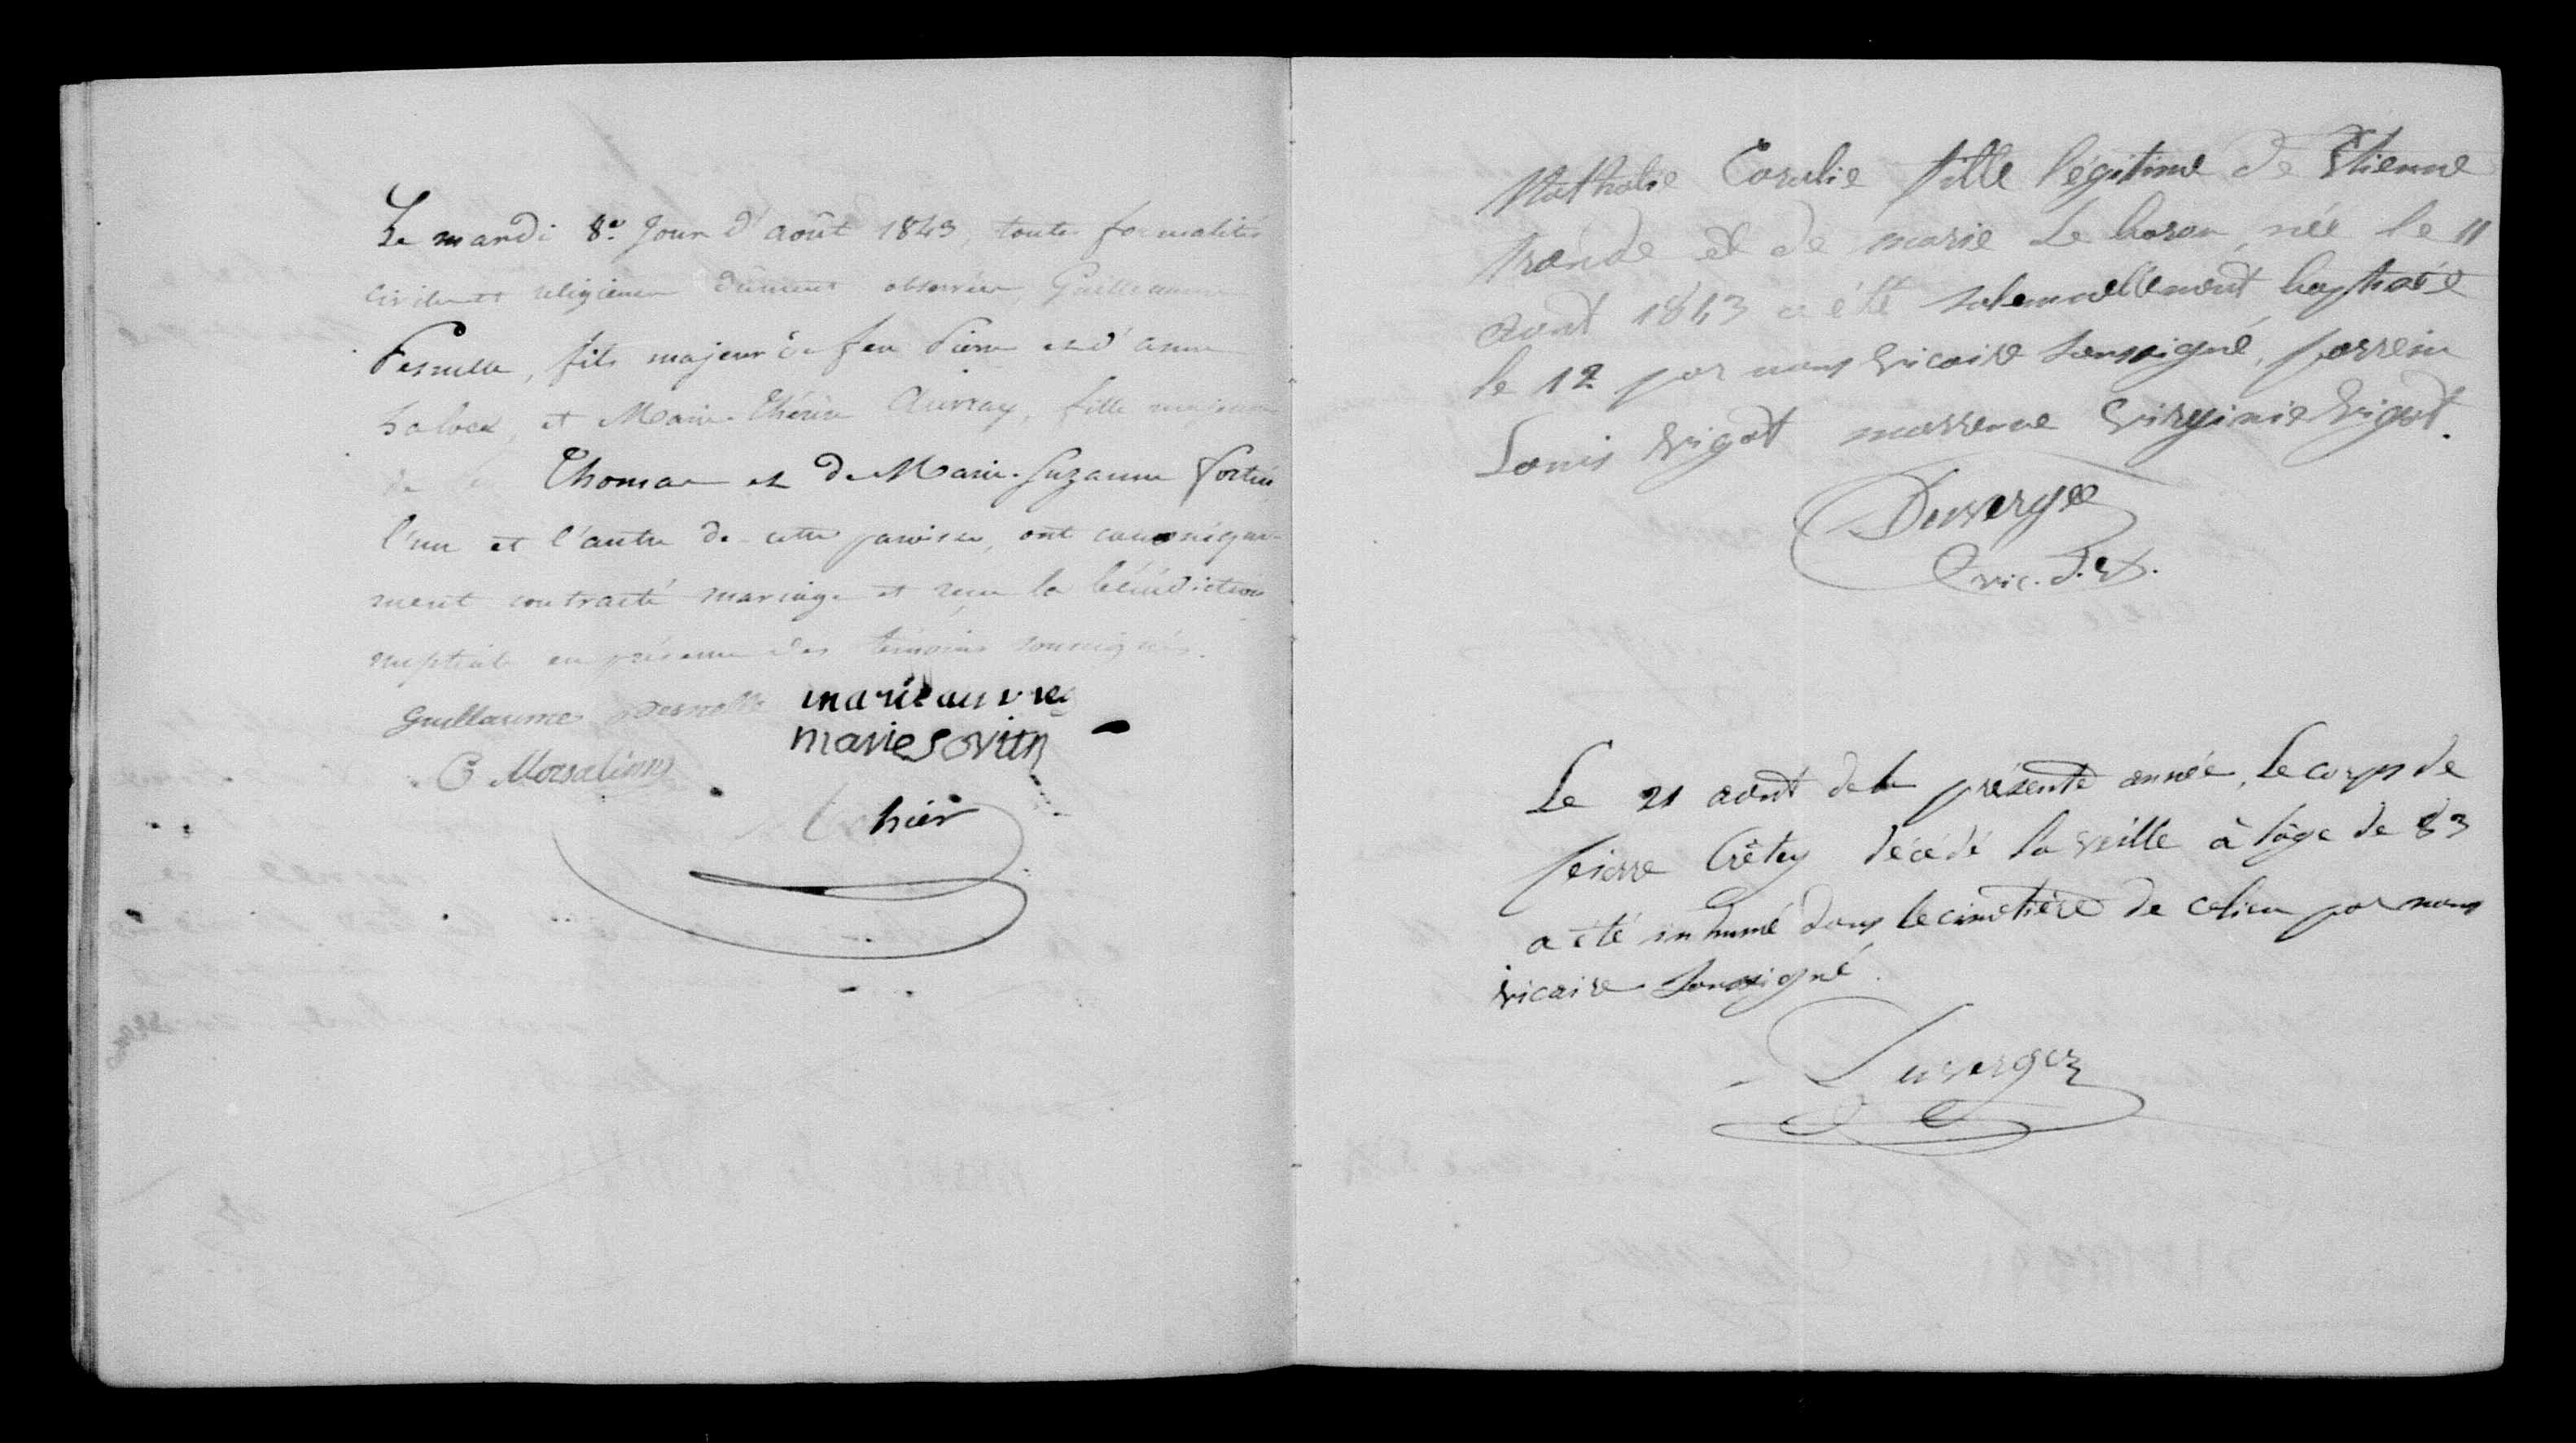 Le mardi 8e. Jour d'août 1843, toutes formalités
civiles et religieuses dûment observées Guillaume
Pesnelle, fils majeur de feu Pierre et d'anne
et Marie-Thérèse Auvray, fille majeure
de feu Thomas et de Marie-Suzanne fortin
l'un et l'autre de cette paroisse, ont canonique-
ment contracté mariage et reçu la bénédiction
nuptiale en présence des témoins soussignés.
Guillaume Pesnelle marie auvre
marie
hier
Nathalie Coralie fille légitime de Etienne
et de marie née le 11
août 1843 a été solennellement baptisée
le 12 par nous vicaire soussigné, parrein
Louis vigot marrenne virginie vigot.
Duverger
vic.
Le 21 août de la présente année, Le corps de
pierre Crêtey décédé la veille à l'âge de 83
a été inhumé dans le cimetière de celieu par nous
vicaire soussigné.
Duverger